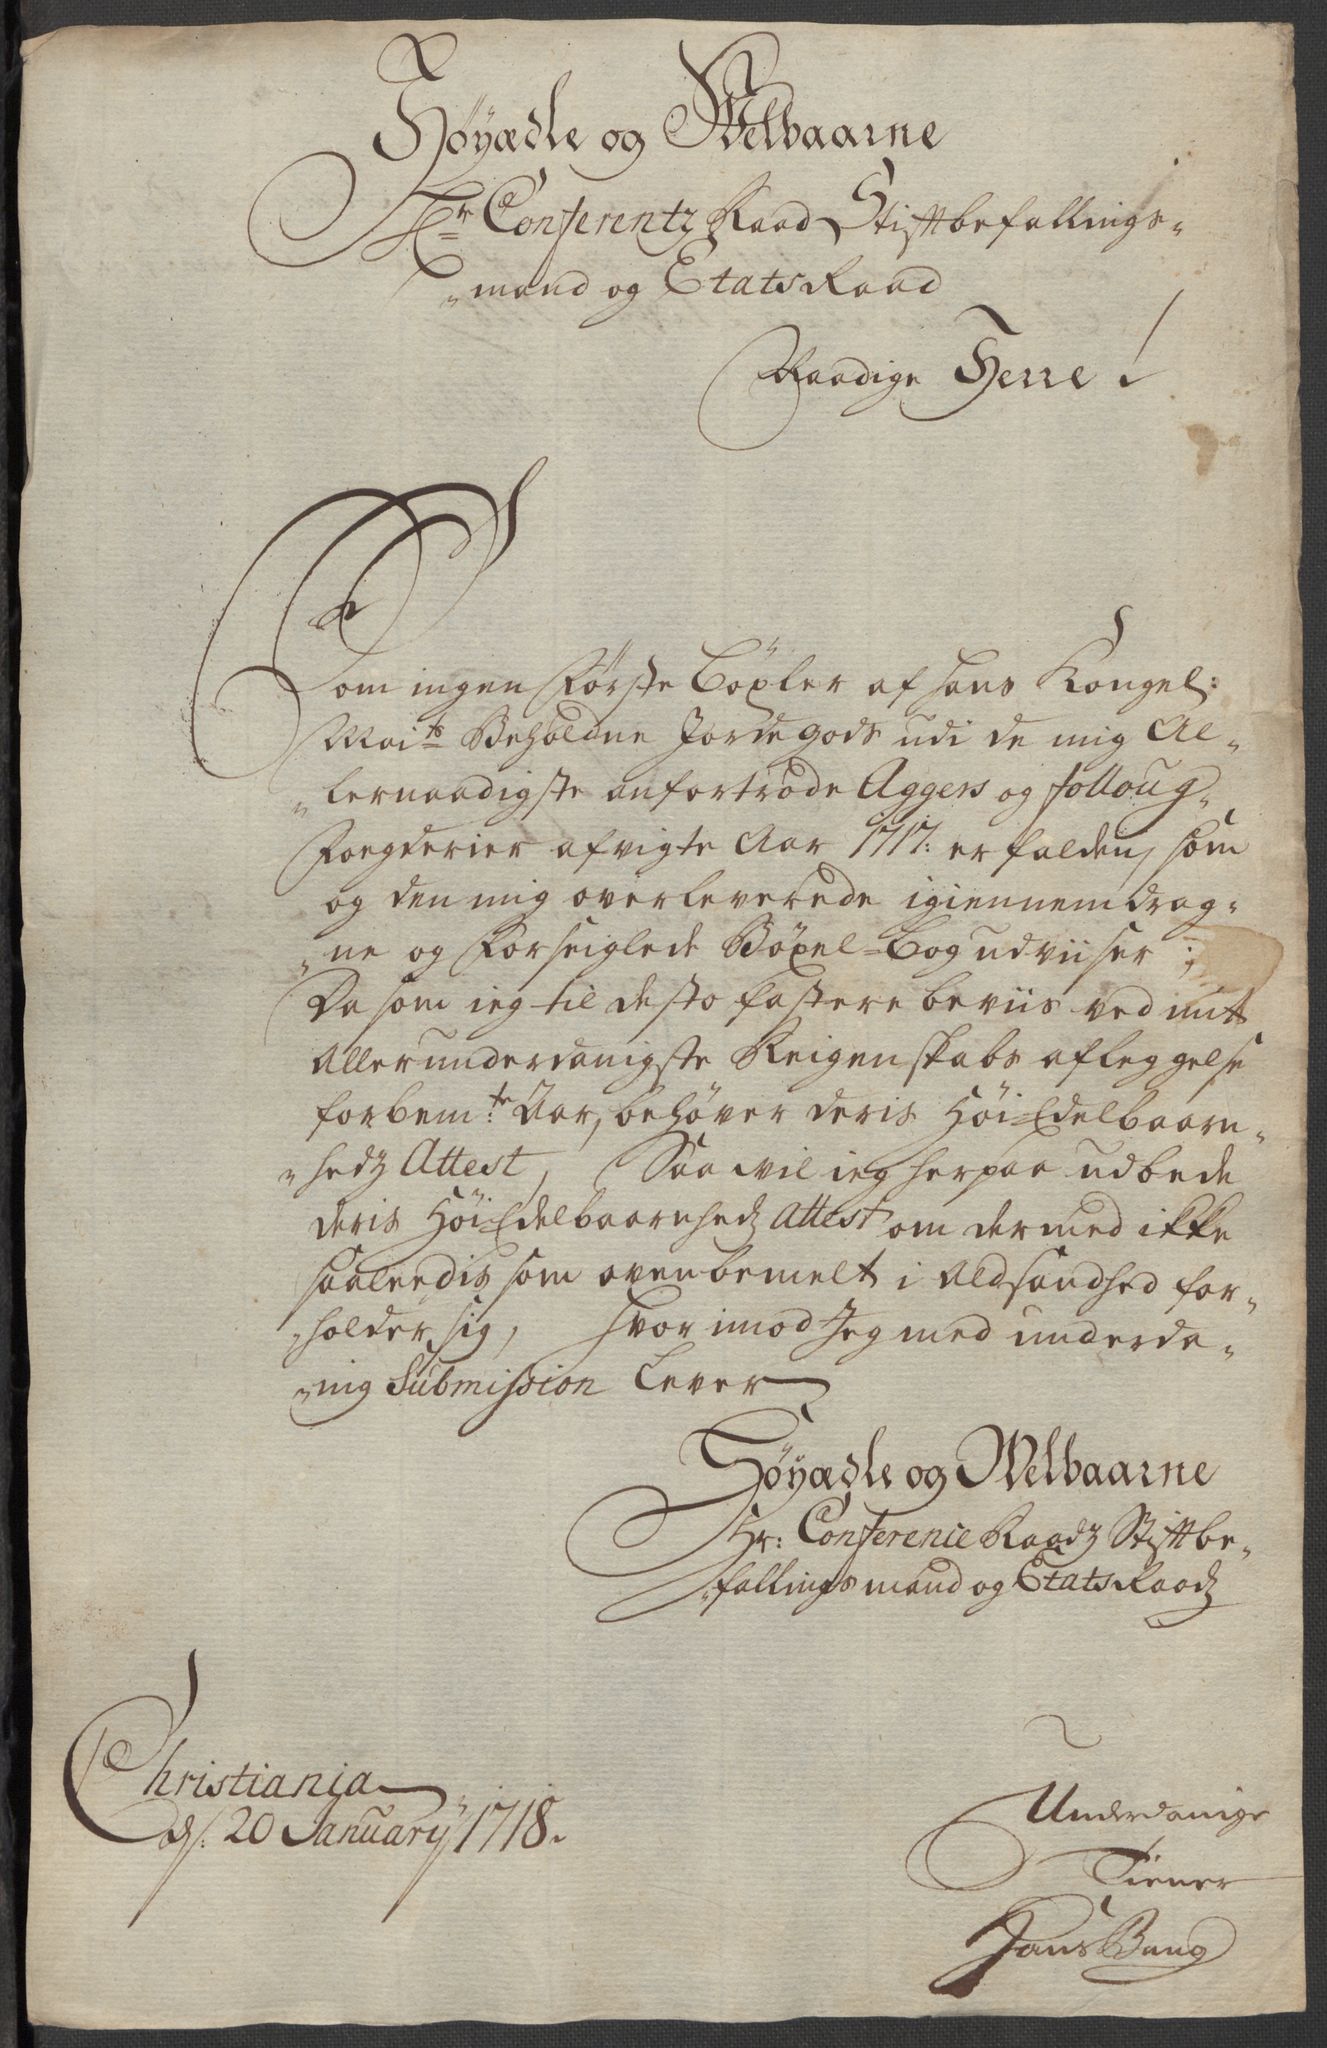 Høyædle og Welbaarne
Hr Conferentz Raad Stiftbefallings-
-mand og Etats Raad
Naadige Herre!
Som ingen Første böxler af hans Kongel:
Maits Beholdne Jordegods udi de mig Al-
-lernaadigste anfortrode Aggers og folloug-
Foegderier afvigte Aar 1717: er falden, som
og den mig overleverede igiennemdrag-
-ne og Forseiglede Böxel-bog udviiser;
Da som ieg til desto fastere beviis ved mit
Allerunderdanigste Reigenskabs afleggelse
for bemte Aar, behøver deris Höi-Edelbaarn-
-hedz Attest, Saa vil ieg herpaa udbede
deris Höi-Edelbaarnhedz Attest om dermed ikke
saaleedis som ovenbemelt i Aldsandhed for-
-holder sig, hvorimod Jeg med underda-
-nig Submission lever
Høyædle og Welbaarne
Hr: Conference Raadz Stiftbe-
-fallings mand og Etats Raadz
Christiania
ds: 20 January 1718.
Underdanige
Tiener
Hans Bang